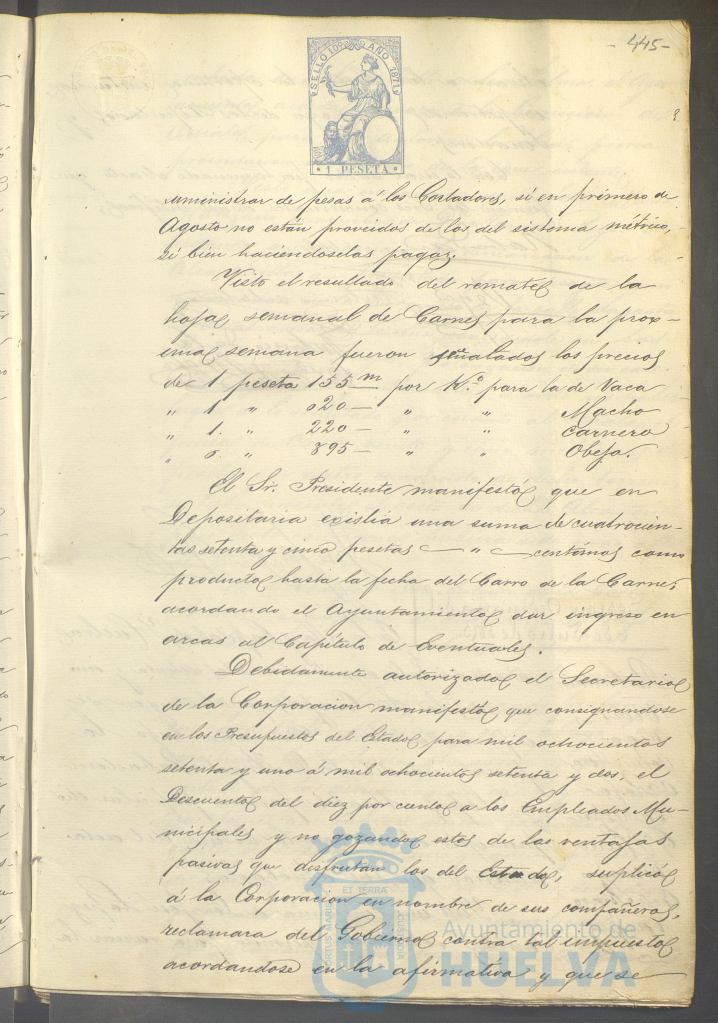 - 445-
SELLO 10º AÑO 1871
1 PESETA
suministrar de pesas á los Cortadores, si en primero de
Agosto no están proveidos de las del sistema métrico,
si bien haciéndoselas pagar.
Visto el resultado del remate de la
hoja semanal de Carnes para la prox-
ima semana fueron señalados los precios
de 1 peseta 155 m por K.º para la de Vaca
" 1 " 020 — " " Macho
" 1. " 220 — " " Carnero
" 0. " 895 — " " Obeja.
El Sr. Presidente manifestó que en
Depositaria existia una suma de cuatrocien-
tas setenta y cinco pesetas — " — centimos como
producto hasta la fecha del Carro de la Carne,
acordando el Ayuntamiento dar ingreso en
arcas al Capítulo de Eventuales.
Debidamente autorizado el Secretario
de la Corporacion manifestó que consignandose
en los Presupuestos del Estado para mil ochocientos
setenta y uno á mil ochocientos setenta y dos, el
Descuento del diez por ciento a los Empleados Mu-
nicipales y no gozando estos de las ventajas
pasivas que disfrutan los del Estado, suplicó
á la Corporacion en nombre de sus compañeros,
reclamara del Gobierno contra tal impuesto
acordandose en la afirmativa y que se
PORTUS MARIS ET TERRAE CUSTODIA
Ayuntamiento de
HUELVA